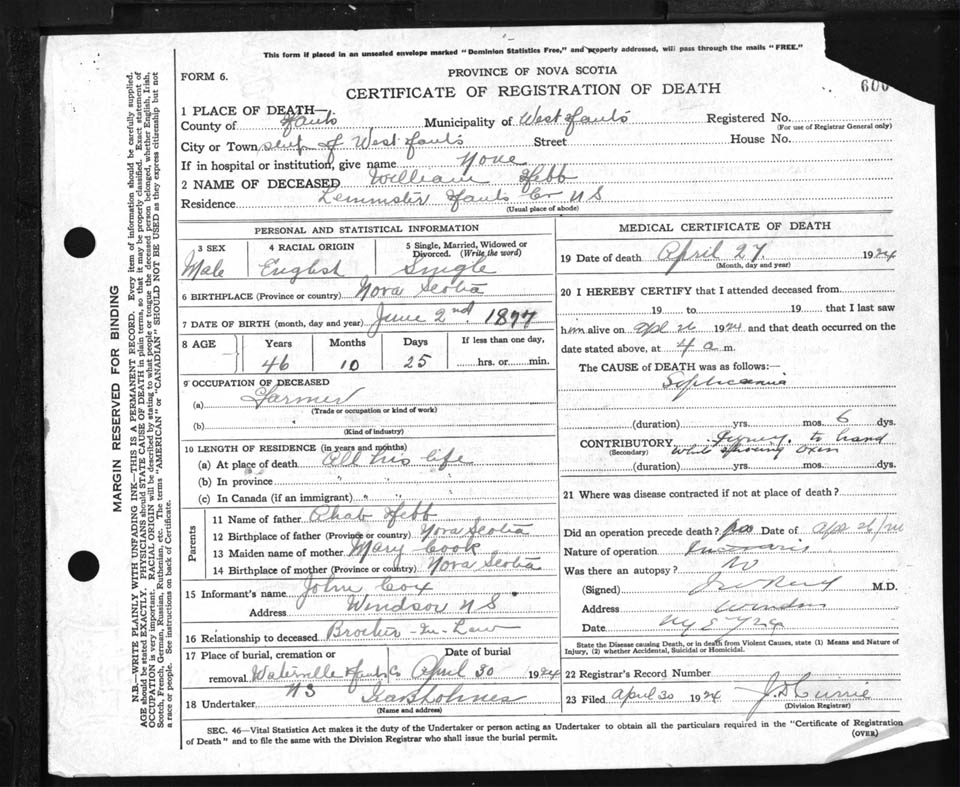 This form if placed in an unsealed envelope marked "Dominion Statistics Free," and properly addressed, will pass through the mails "FREE."
FORM 6.
PROVINCE OF NOVA SCOTIA
CERTIFICATE OF REGISTRATION OF DEATH
600
1 PLACE OF DEATH—
County of Hants Municipality of West Hants Registered No.
(For use of Registrar General only)
City or Town of West Hants Street House No.
If in hospital or institution, give name None
2 NAME OF DECEASED William Hebb
Residence Lemmster Hants Co NS
(Usual place of abode)
PERSONAL AND STATISTICAL INFORMATION
3 SEX
Male
4 RACIAL ORIGIN
English
5 Single, Married, Widowed or Divorced. (Write the word)
Single
6 BIRTHPLACE (Province or country) Nova Scotia
7 DATE OF BIRTH (month, day and year) June 2nd. 1877
8 AGE Years Months Days If less than one day,
46 10 25 hrs. or min.
9 OCCUPATION OF DECEASED
(a) Farmer
(Trade or occupation or kind of work)
(b)
(Kind of industry)
10 LENGTH OF RESIDENCE (in years and months)
(a) At place of death All his life
(b) In province " "
(c) In Canada (if an immigrant) " "
Parents
11 Name of father Ahab Hebb
12 Birthplace of father (Province or country) Nova Scotia
13 Maiden name of mother Mary Cook
14 Birthplace of mother (Province or country) Nova Scotia
15 Informant's name John Cox
Address Windsor N S.
16 Relationship to deceased Brother-In-Law
17 Place of burial, cremation or removal Date of burial
Waterville Hants Co April 30 1924
NS
18 Undertaker Holmes
(Name and address)
MEDICAL CERTIFICATE OF DEATH
19 Date of death April 27 1924
(Month, day and year)
20 I HEREBY CERTIFY that I attended deceased from
19 to 19 that I last saw
him alive on Apl 26 1924 and that death occurred on the
date stated above, at 4 a m.
The CAUSE of DEATH was as follows:—
Septicaemia
(duration) yrs. mos. 6 dys.
CONTRIBUTORY Injury to hand
(Secondary) while shoeing oxen
(duration) yrs. mos. dys.
21 Where was disease contracted if not at place of death?
Did an operation precede death? Date of Apl 26/24
Nature of operation
Was there an autopsy? No
(Signed) M.D.
Address Windsor
Date
State the Disease causing Death, or in death from Violent Causes, state (1) Means and Nature of Injury, (2) whether Accidental, Suicidal or Homicidal.
22 Registrar's Record Number
23 Filed April 30 1924 J. D Currie
(Division Registrar)
SEC. 46—Vital Statistics Act makes it the duty of the Undertaker or person acting as Undertaker to obtain all the particulars required in the "Certificate of Registration
of Death" and to file the same with the Division Registrar who shall issue the burial permit.
(OVER)
MARGIN RESERVED FOR BINDING
N.B.—WRITE PLAINLY WITH UNFADING INK—THIS IS A PERMANENT RECORD. Every item of information should be carefully supplied.
AGE should be stated EXACTLY. PHYSICIANS should STATE CAUSE OF DEATH in plain terms, so that it may be properly classified. Exact statement of
OCCUPATION is very important. RACIAL ORIGIN will be described by stating to what people or tongue the deceased person belonged, whether English, Irish,
Scotch, French, German, Russian, Ruthenian, etc. The terms "AMERICAN" or "CANADIAN" SHOULD NOT BE USED as they express citizenship but not
a race or people. See instructions on back of Certificate.